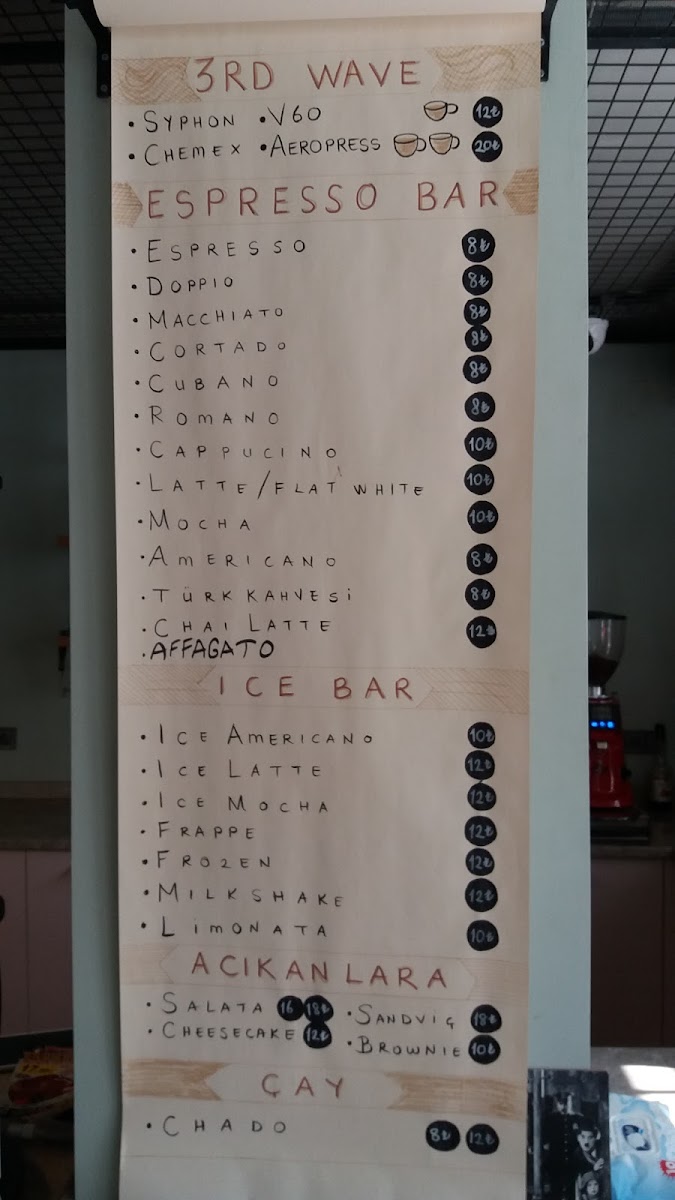 3RD WAVE
• SYPHON • V60 12₺
• CHEMEX • AEROPRESS 20₺
ESPRESSO BAR
• ESPRESSO 8₺
• DOPPIO 8₺
• MACCHIATO 8₺
• CORTADO 8₺
• CUBANO 8₺
• ROMANO 8₺
• CAPPUCINO 10₺
• LATTE/FLAT WHITE 10₺
• MOCHA 10₺
• AMERICANO 8₺
• TÜRK KAHVESİ 8₺
• CHAI LATTE 12₺
• AFFAGATO
ICE BAR
• ICE AMERICANO 10₺
• ICE LATTE 12₺
• ICE MOCHA 12₺
• FRAPPE 12₺
• FROZEN 12₺
• MILKSHAKE 12₺
• LIMONATA 10₺
ACIKANLARA
• SALATA 16 18₺ • SANDVIÇ 18₺
• CHEESECAKE 12₺ • BROWNIE 10₺
ÇAY
• CHADO 8₺ 12₺